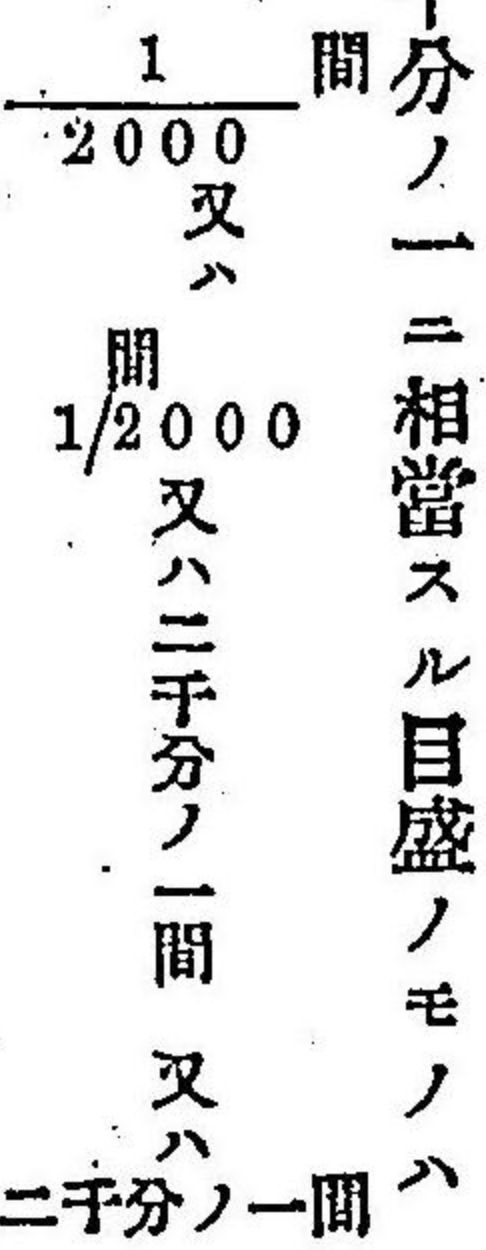 分ノ一ニ相當スル目盛ノモノハ
間
1
2000
又ハ
間
1/2000
又ハ二千分ノ一間 又ハ
二千分ノ一間